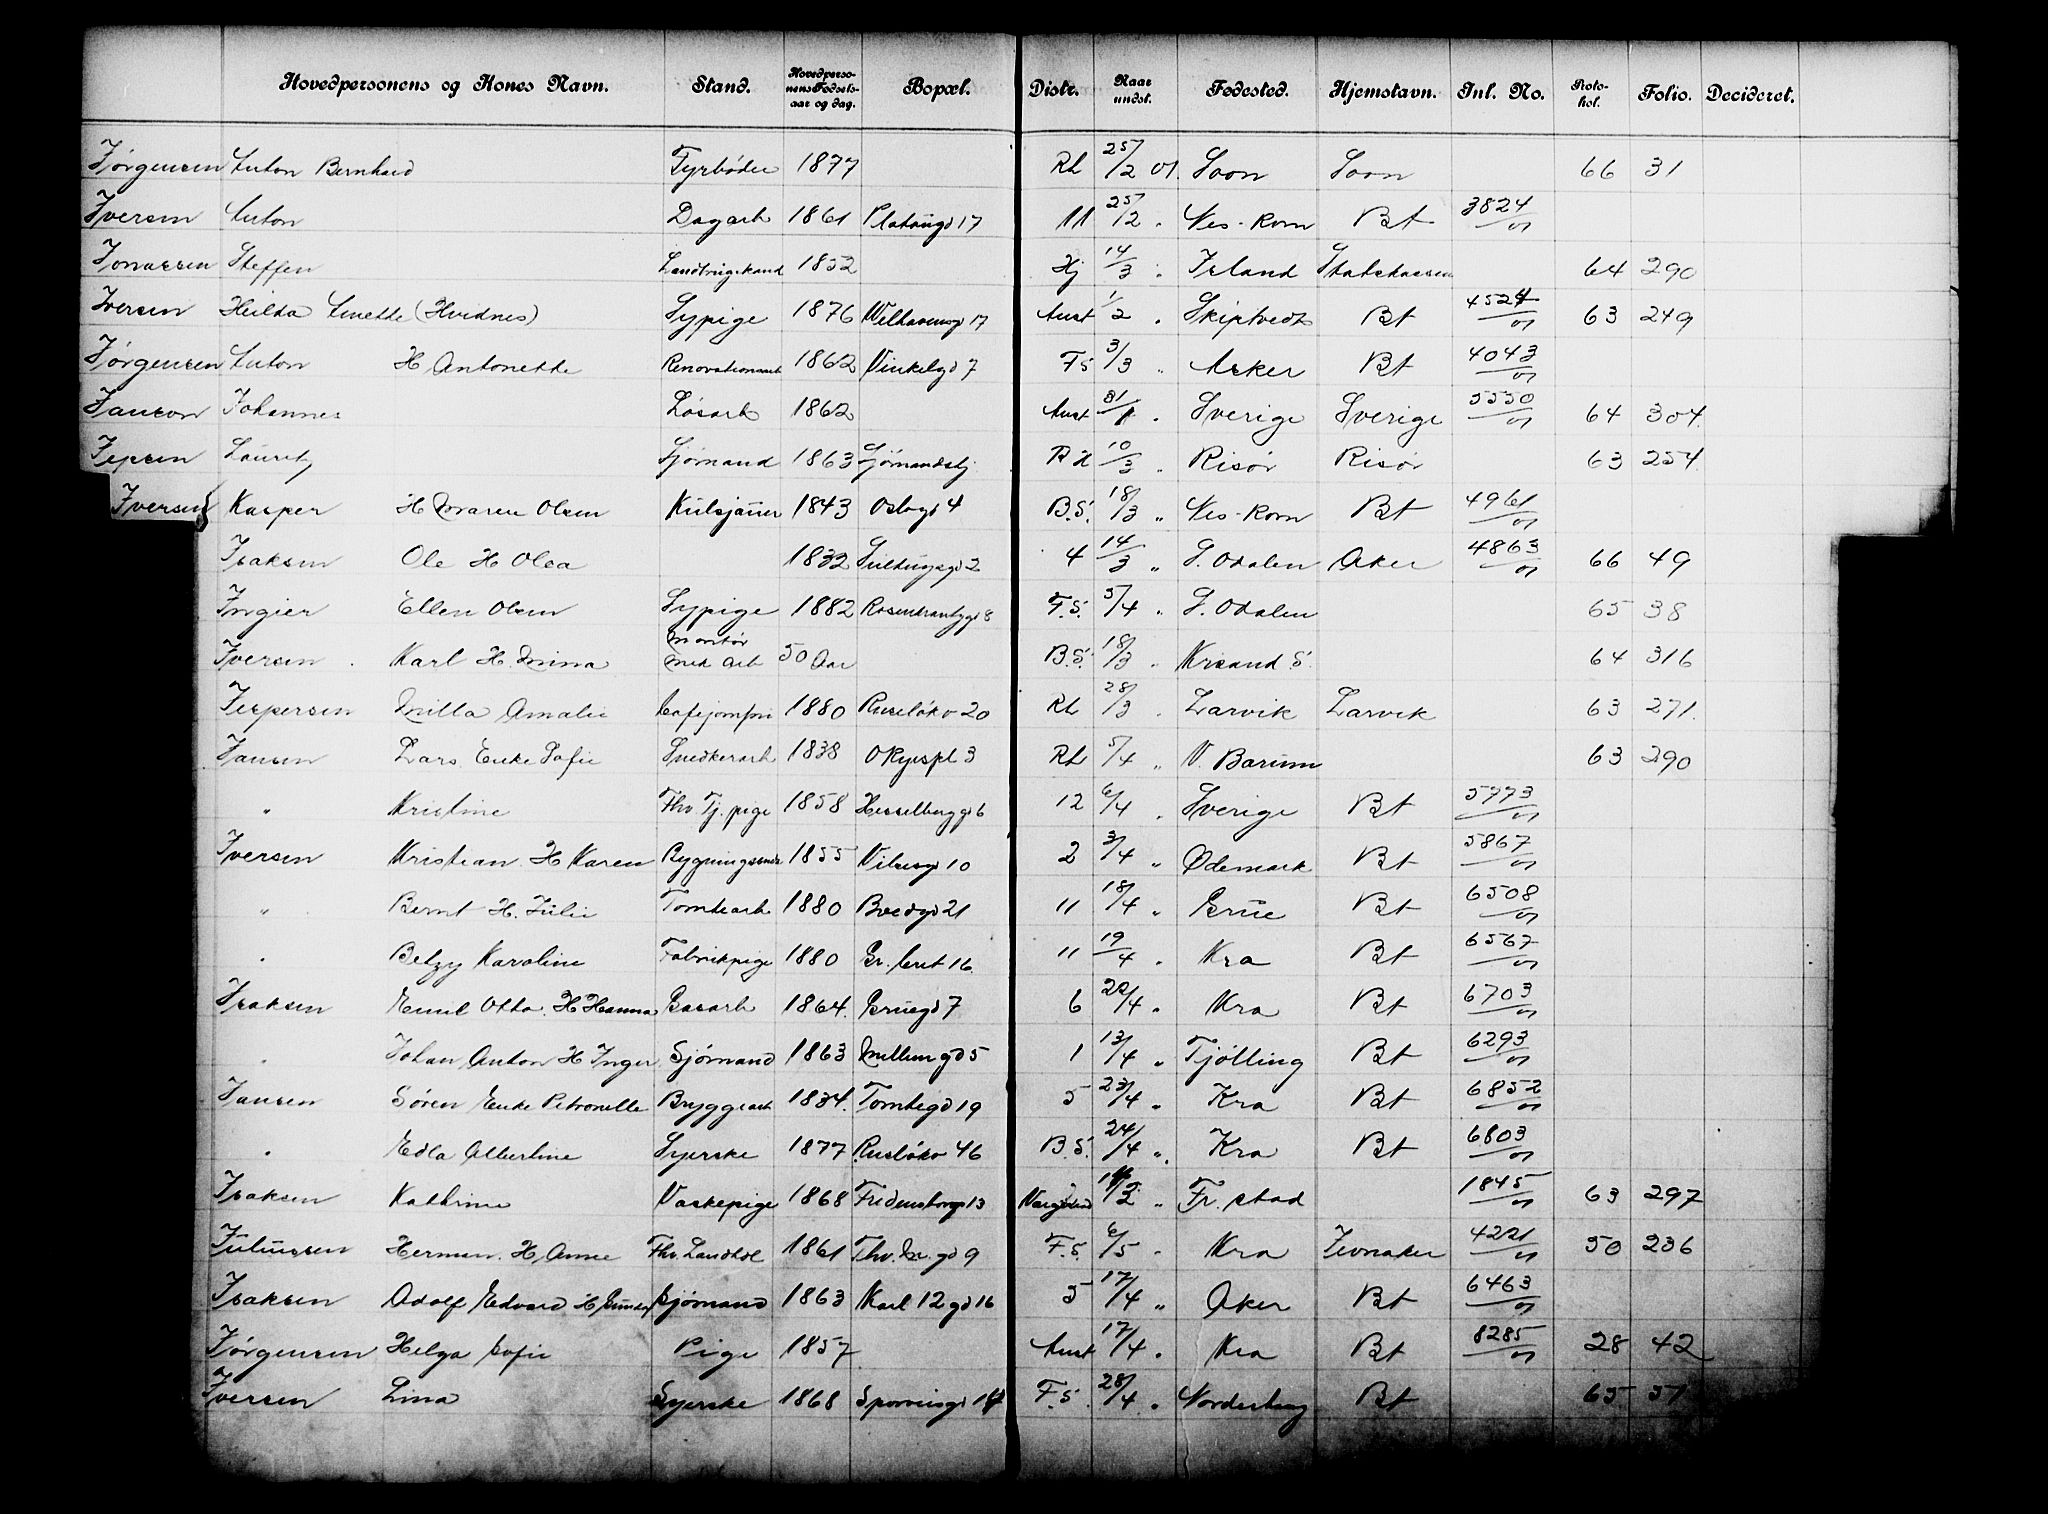 Hovedpersonens og Kones Navn. Stand. Hovedperso-nens Fødsels-aar og dag. Bopæl. Distr. Naar undst. Fødested. Hjemstavn. Inl. No. Proto-kol. Folio. Decideret.
Jørgensen Anton Bernhard Fyrbøder 1877 Rh 25/2 01. Soon Soon 66 31
Iversen Anton Dagarb 1861 Platougd 17 11 25/2 " Nes - Rom Bt 3824/01
Jonassen Steffen Landbrugskand 1852 Hj 14/3 " Island Statskassen 64 290
Iversen Hilda Anette (Hvidnes) Sypige 1876 Welhavensgd 17 Aust 1/2 " Skiptvedt Bt 4524/01 63 249
Jørgensen Anton H Antonette Renovationsarb 1862 Vinkelgd 7 FS 3/3 " Asker Bt 4043/01
Janson Johannes Løsarb 1862 Aust 31/1 " Sverige Sverige 5550/01 64 304
Jepsen Lauritz Sjømand 1863 Sjømandshj. RH 10/3 " Risør Risør 63 254
Iversen Kasper H Maren Olsen Kulsjauer 1843 Oslogd 4 B.S. 18/3 " Nes - Rom Bt 4961/01
Isaksen Ole H Olea 1832 2 4 14/3 " S. Odalen Aker 4863/01 66 49
Ingier Ellen Olsen Sypige 1882 Rosenkrantzgd 8 F.S. 5/4 " S. Odalen 65 38
Iversen Karl H. Mina Montør Med Arb 50 Aar B.S. 18/3 " Krsand S. 64 316
Jespersen Milla Amalie Cafejomfru 1880 Ruseløkv 20 Rh 28/3 " Larvik Larvik 63 271
Jansen Lars Enke Sofie Snedkerarb 1838 O Ryespl 3 Rh 5/4 " V. Barum 63 290
" Kristine Fhv. Tj. pige 1858 Hesselberggd 6 12 6/4 " Sverige Bt 5773/01
Iversen Kristian H Karen Bygningssnedk 1855 Vibesgd 10 2 3/4 " Ødemark Bt 5867/01
" Bernt H. Julie Tomtearb 1880 Bredgd 21 11 18/4 " Grue Bt 6508/01
" Betzy Karoline Fabrikpige 1880 Gr. 16 11 19/4 " Kra Bt 6567/01
Isaksen Emil Otto H Hanna Gasarb 1864 Gruegd 7 6 22/4 " Kra Bt 6703/01
" Johan Anton H Inger Sjømand 1863 Mellemgd 5 1 13/4 " Tjølling Bt 6293/01
Jansen Søren Enke Petronelle Bryggearb 1834 Tomtegd 19 5 23/4 " Kra Bt 6852/01
" Edla Albertine Syerske 1877 Ruseløkv 46 B.S. 24/4 " Kra Bt 6803/01
Isaksen Kathrine Vaskepige 1868 Fredensborgv 13 /2 " Fr. stad 1845/01 63 297
Juliussen Herman H. Anne Fhv. Landhdl 1861 Thv. M. gd 9 F.S. 6/5 " Kra Jevnaker 4221/01 50 236
Isaksen Adolf Edvard H Gunda Sjømand 1863 Karl 12 gd 16 5 17/4 " Aker Bt 6463/01
Jørgensen Helga Sofie Pige 1857 Aust 17/4 " Kra Bt 8285/01 28 42
Iversen Lina Syerske 1868 Sporveisgd F.S. 28/4 " Norderhoug Bt 65 51